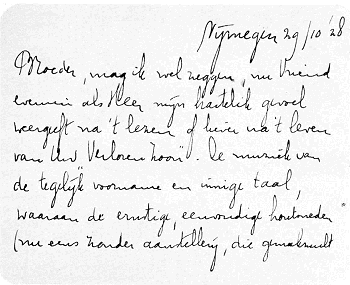 Nijmegen 29/10 '28
Broeder, mag ik wel zeggen, nu Vriend
evenmin als Heer mijn hartelijk gevoel
weergeft na 't lezen of liever na 't leven
van Uw "Verloren Zoon". De muziek van
de tegelijk voorname en innige taal,
waaraan de ernstige, eenvoudige houtsneden
(nu eens zonder aanstellerij, die gemaksucht